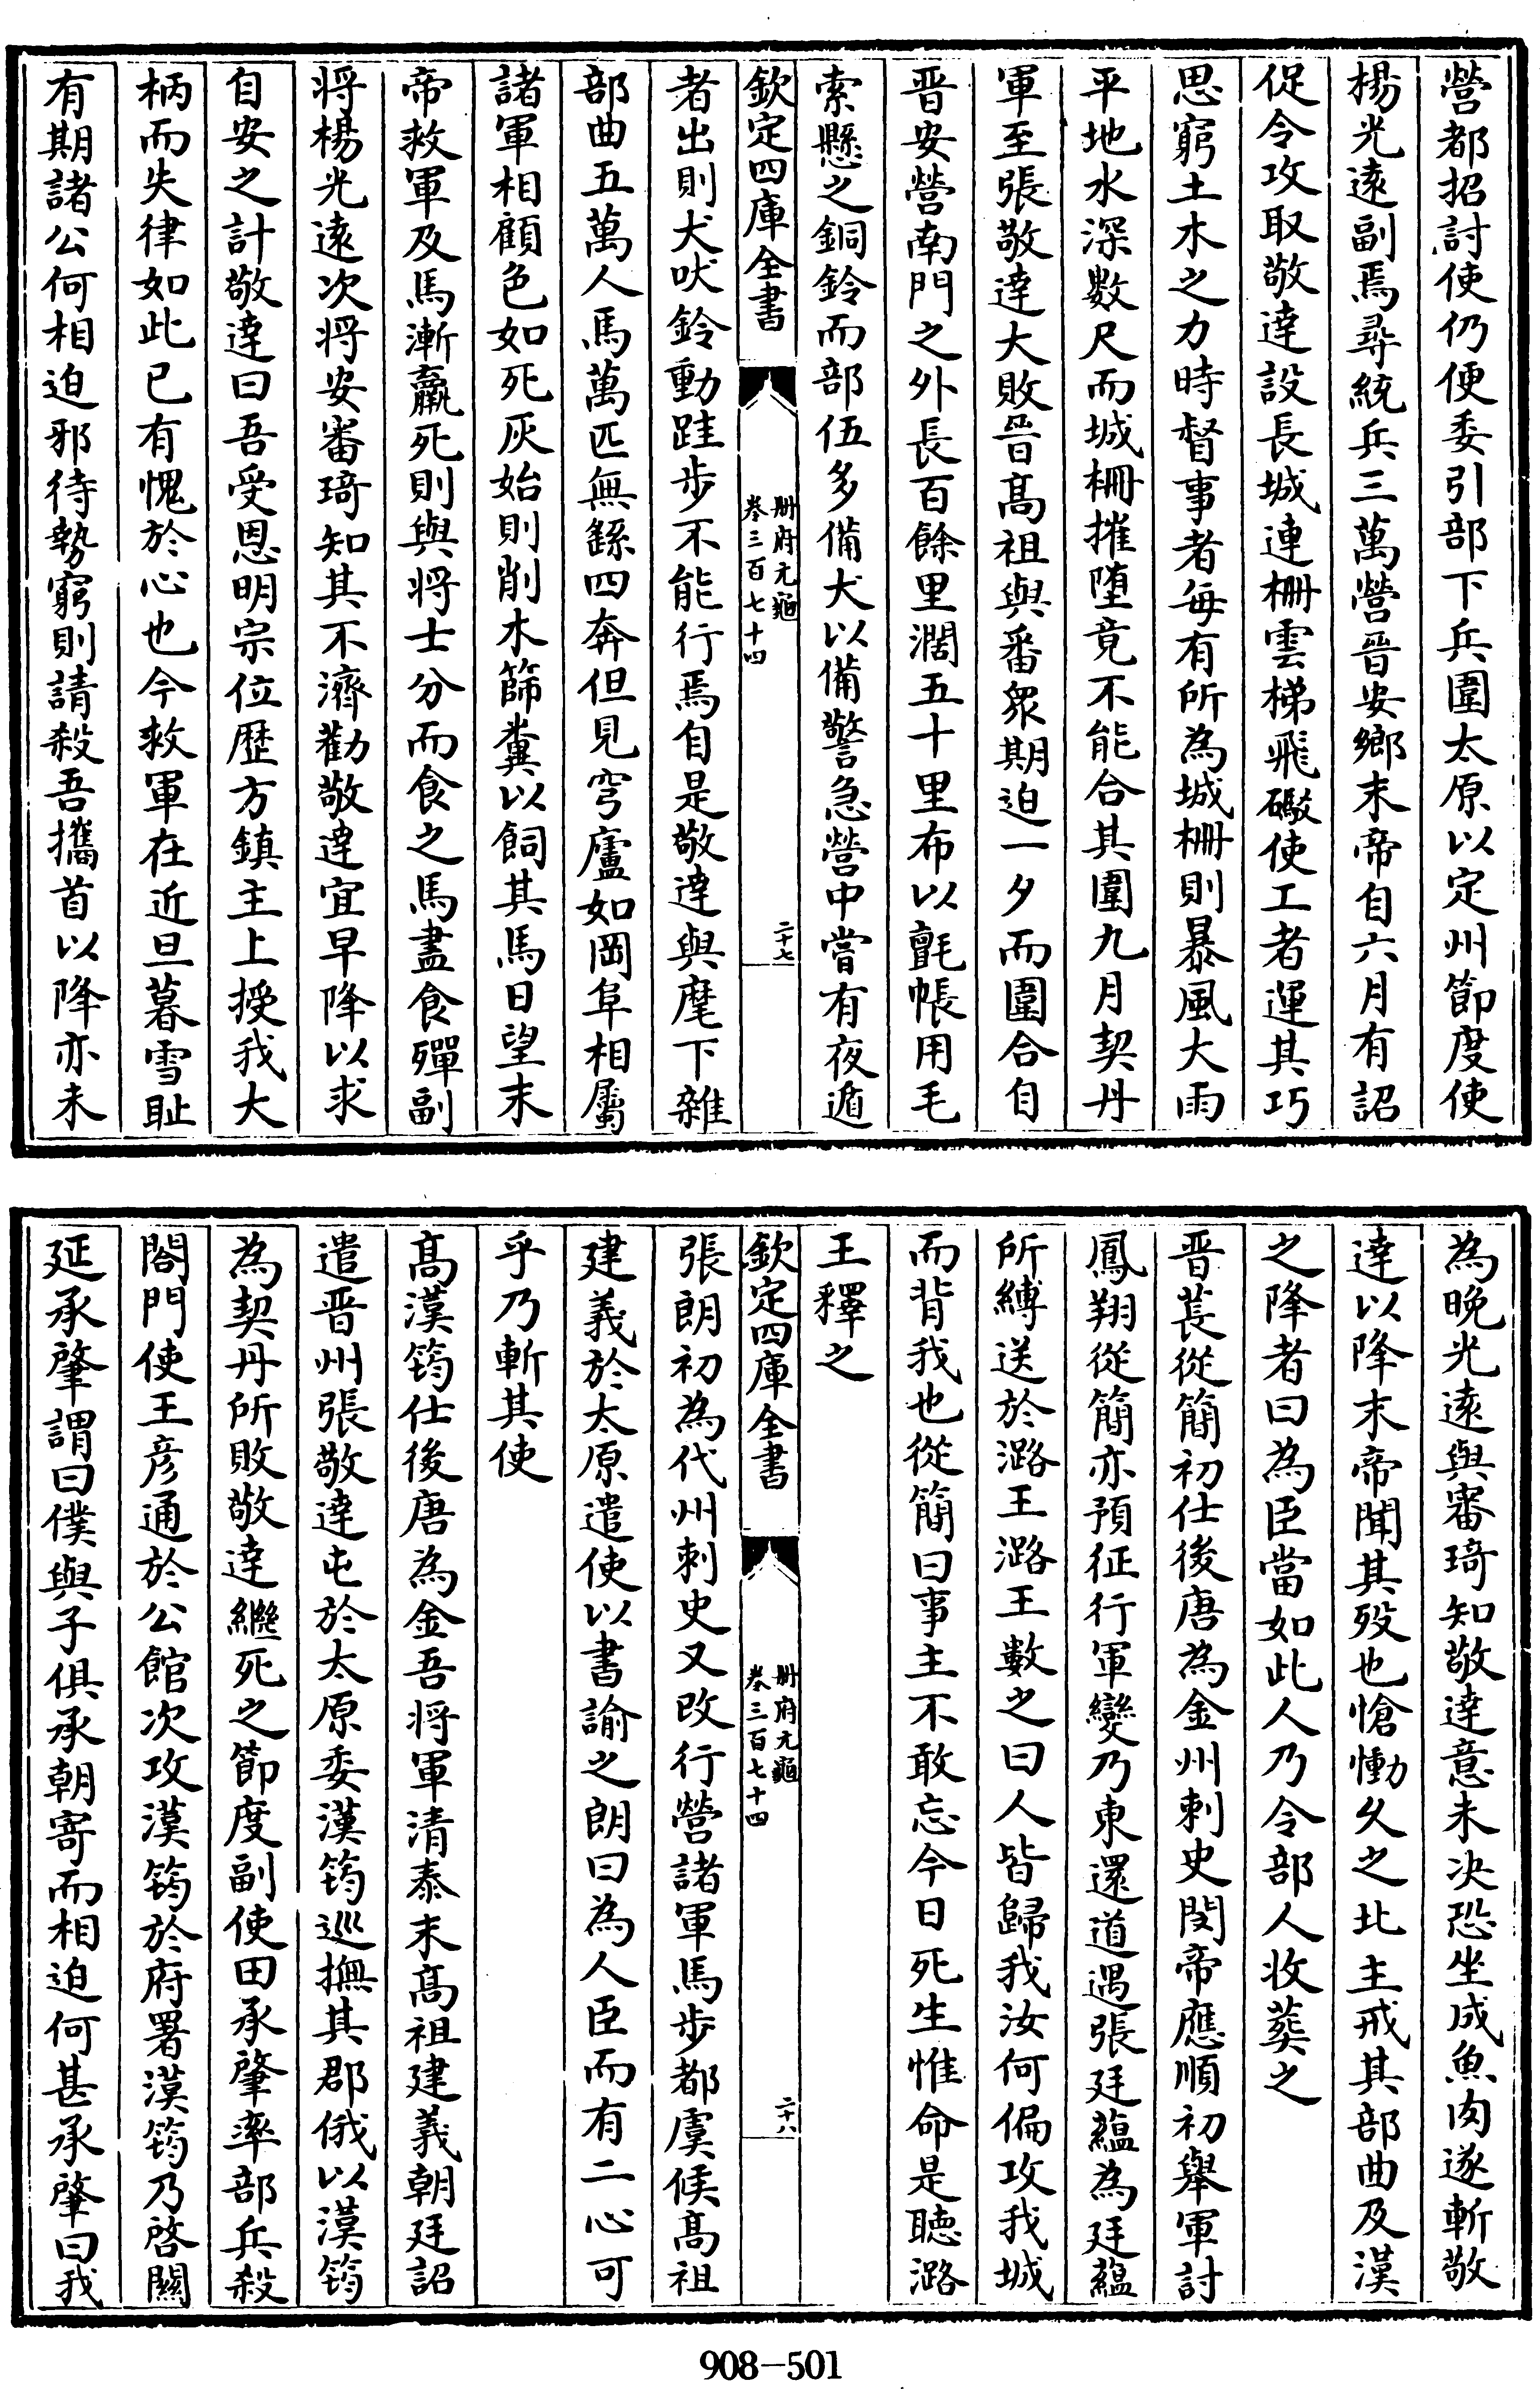 營都招討使仍便委引部下兵圍太原以定州節度使
楊光逺副焉尋統兵三萬營晉安鄉末帝自六月有詔
促令攻取敬達設長城連柵雲梯飛礮使工者運其巧
思窮土木之力時督事者每有所為城柵則暴風大雨
平地水深數尺而城柵摧堕竟不能合其圍九月契丹
軍至張敬達大敗晉髙祖與番衆期迫一夕而圍合自
晉安營南門之外長百餘里濶五十里布以氊帳用毛
索懸之銅鈴而部伍多備犬以備警急營中嘗有夜遁
欽定四庫全書
冊府元龜
卷三百七十四
二十七
者出則犬吠鈴動跬步不能行焉自是敬達與麾下雜
部曲五萬人馬萬匹無繇四奔但見穹廬如岡阜相屬
諸軍相顧色如死灰始則削木篩糞以飼其馬日望末
帝救軍及馬漸羸死則與将士分而食之馬盡食殫副
将楊光逺次将安審琦知其不濟勸敬達宜早降以求
自安之計敬達曰吾受恩明宗位歴方鎮主上授我大
柄而失律如此已有愧於心也今救軍在近旦暮雪耻
有期諸公何相迫邪待勢窮則請殺吾攜首以降亦未
為晚光逺與審琦知敬達意未决恐坐成魚肉遂斬敬
達以降末帝聞其殁也愴慟久之北主戒其部曲及漢
之降者曰為臣當如此人乃令部人收葬之
晉萇從簡初仕後唐為金州刺史閔帝應順初舉軍討
鳳翔從簡亦預征行軍變乃東還道遇張廷蘊為廷蘊
所縛送於潞王潞王數之曰人皆歸我汝何偏攻我城
而背我也從簡曰事主不敢忘今日死生惟命是聽潞
王釋之
欽定四庫全書
冊府元龜
卷三百七十四
二十八
張朗初為代州刺史又改行營諸軍馬步都虞候髙祖
建義於太原遣使以書諭之朗曰為人臣而有二心可
乎乃斬其使
髙漢筠仕後唐為金吾将軍清泰末髙祖建義朝廷詔
遣晉州張敬達屯於太原委漢筠巡撫其郡俄以漢筠
為契丹所敗敬達繼死之節度副使田承肇率部兵殺
閤門使王彦通於公館次攻漢筠於府署漢筠乃啓闗
延承肇謂曰僕與子俱承朝寄而相迫何甚承肇曰我
908-501